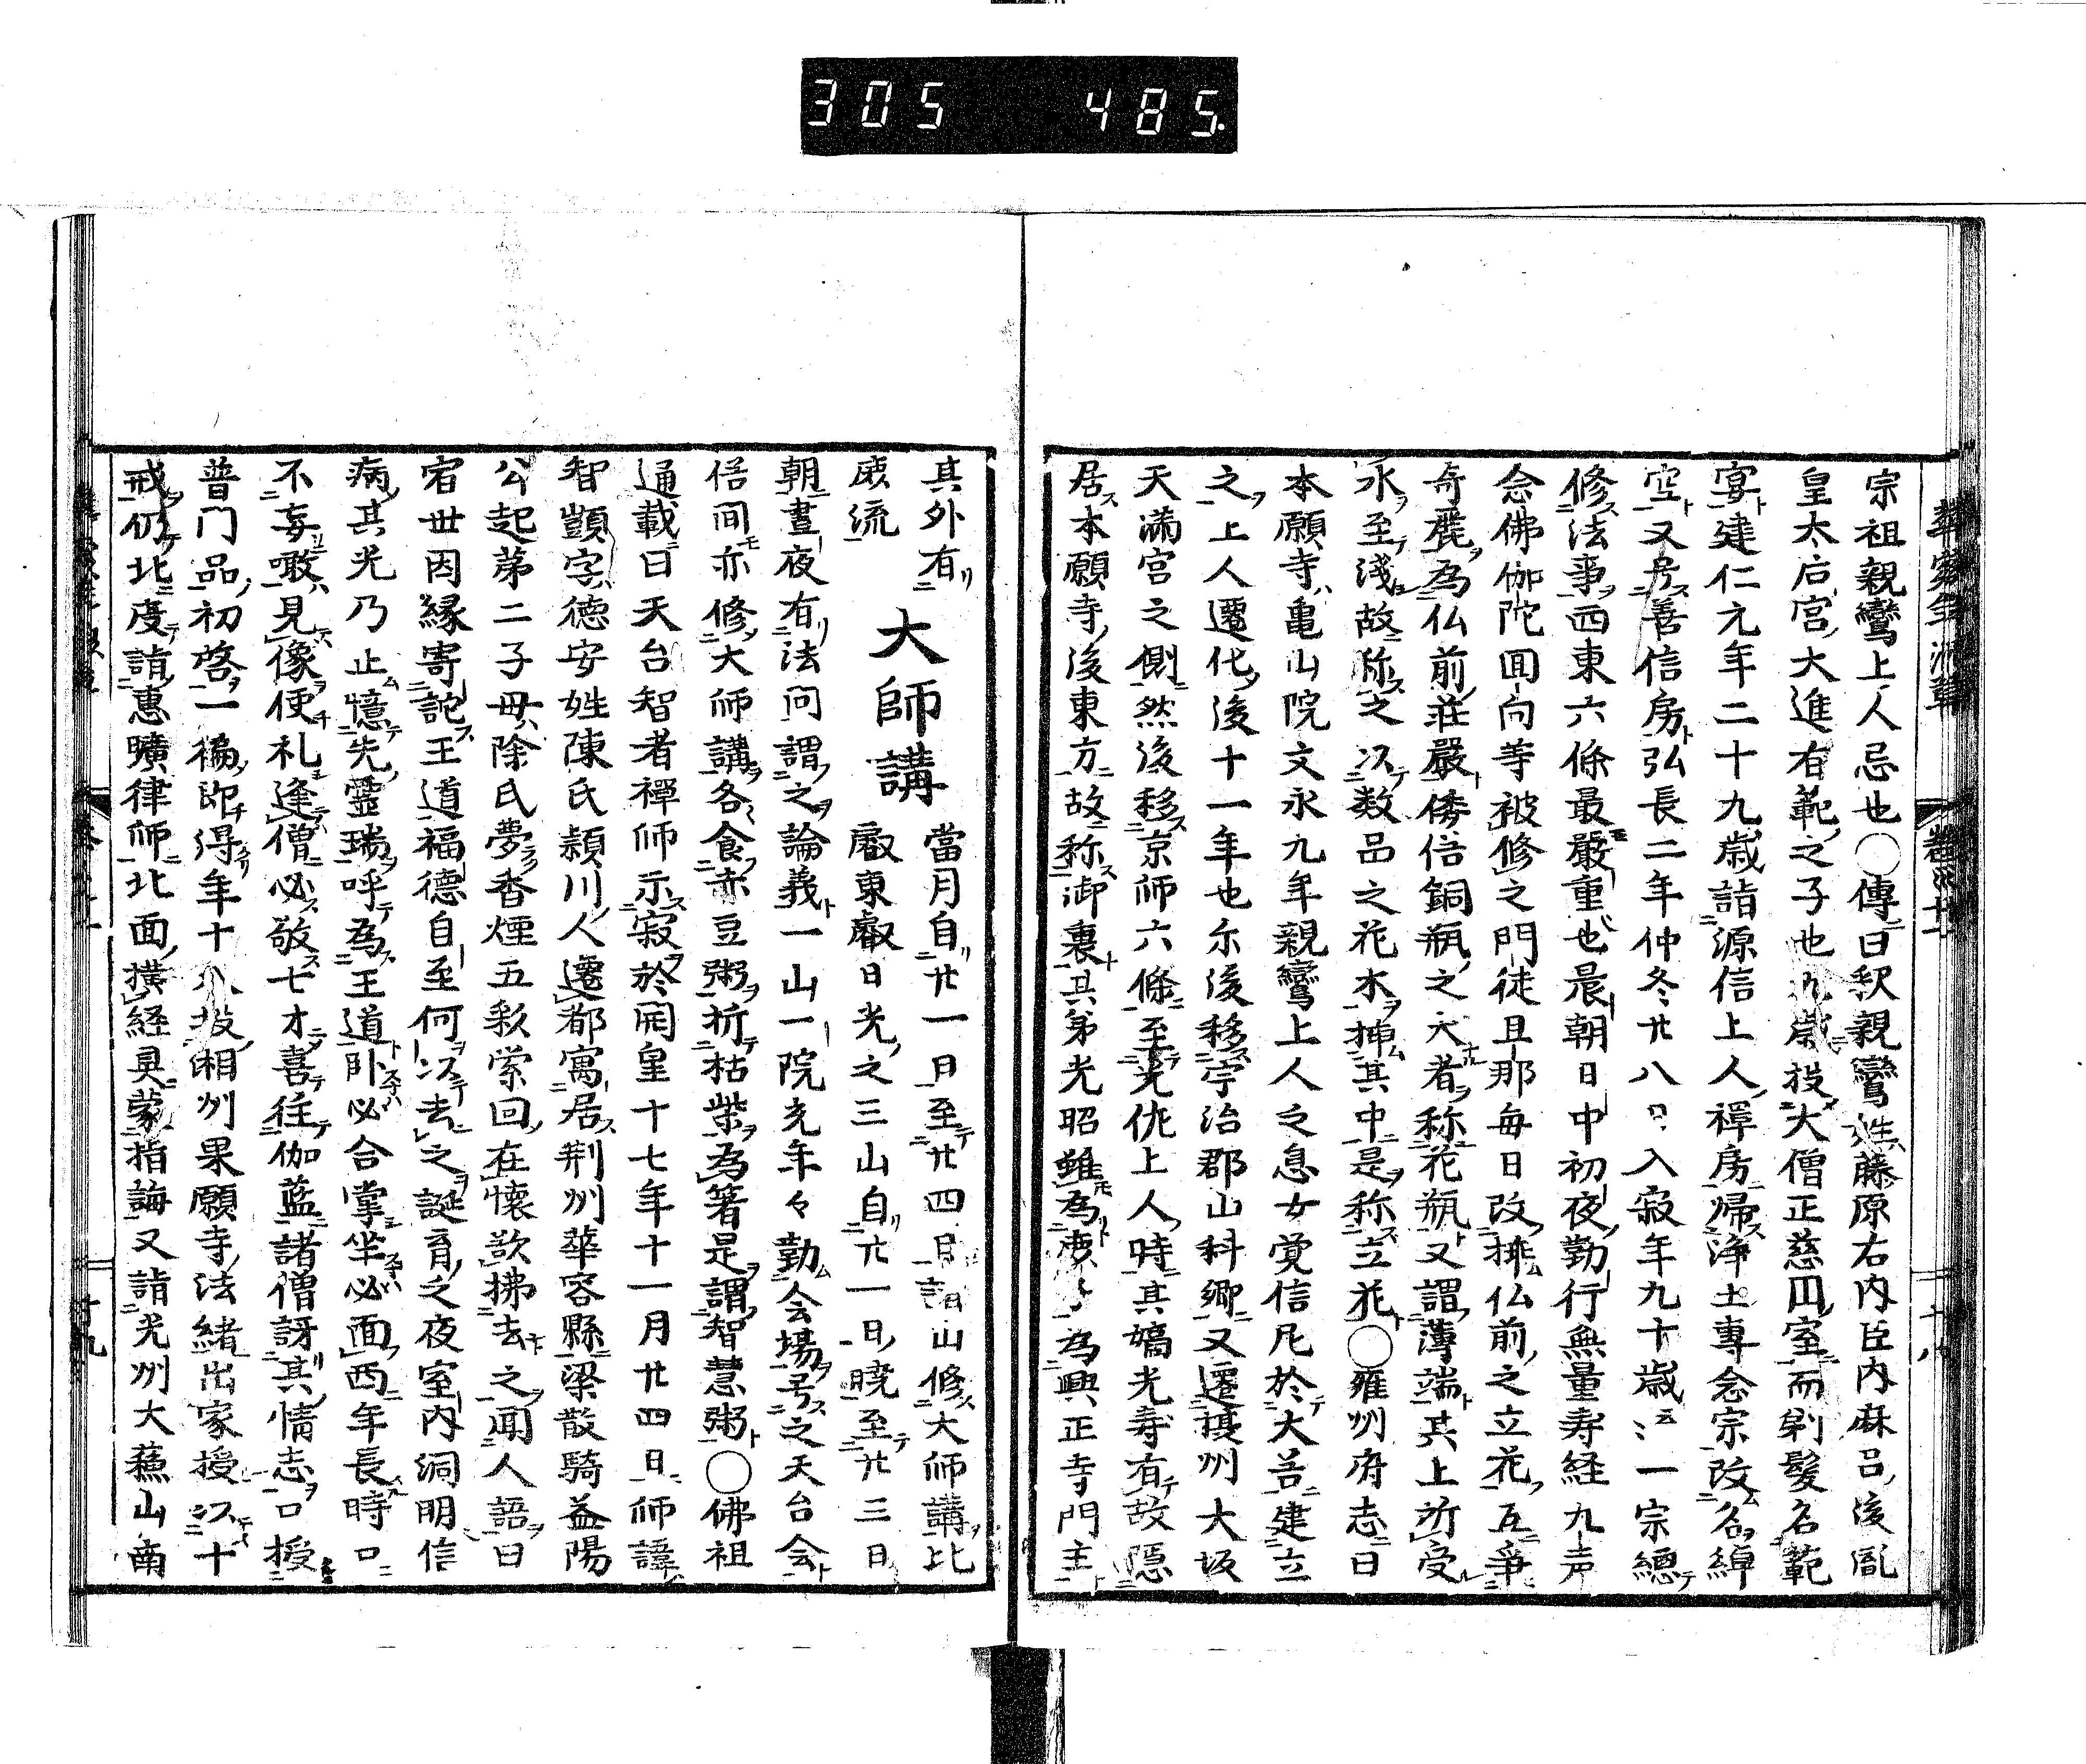 305 485.
宗祖親鸞上人忌也〇傳曰釈親鸞姓藤原右内臣内麻呂後胤
皇太后宮大進有範之子也九歳投大僧正慈圓室而剃髮名範
宴建仁元年二十九歳詣源信上人禅房帰浄土専念宗改名綽
空又号善信房弘長二年仲冬廿八日入寂年九十歳一宗總
修法事西東六條最嚴重也晨朝日中初夜勤行無量寿経九声
念佛伽陀回向等被修之門徒旦那毎日改挑仏前之立花互爭
奇麗為仏前荘嚴傍倍銅瓶之大者称花瓶又謂薄端其上所受
水至淺故称之以数品之花木挿其中是称立花〇雍州府志曰
本願寺亀山院文永九年親鸞上人之息女覚信尼於大谷建立
之上人遷化後十一年也尓後移宇治郡山科郷又遷摂州大坂
天満宮之側然後移京師六條至光佐上人時其嫡光寿有故隠
居本願寺後東方故称御裏其弟光昭雖為為興正寺門主
十八
其外有庶流
大師講 當月自廿一日至廿四日山修大師講比叡東叡日光之三山自廿一日曉至廿三日
朝晝夜有法問謂之論義一山一院毛年々勤会場号之天台会
俗間亦修大師講各食赤豆粥折枯柴為箸是謂智慧粥〇佛祖
通載曰天台智者禪師示寂於開皇十七年十一月廿四日師諱
智顗字德安姓陳氏頴川人遷都寓居荆州華容縣梁散騎益陽
公起苐二子母除氏夢香煙五彩縈回在懐欲拂去之聞人語曰
宿世因縁寄託王道福德自至何以去之誕育之夜室内洞明信
病其光乃止憶先靈瑞呼為王道卧必合掌坐必面西年長時口
不妄噉見像便礼逢僧必敬七才喜往伽藍諸僧訝其情志口授
普門品初啓一徧即得年十八投湘州果願寺法緒出家授以十
戒仍北度詣惠曠律師北面横経具蒙指誨又詣光州大蘓山南
十九